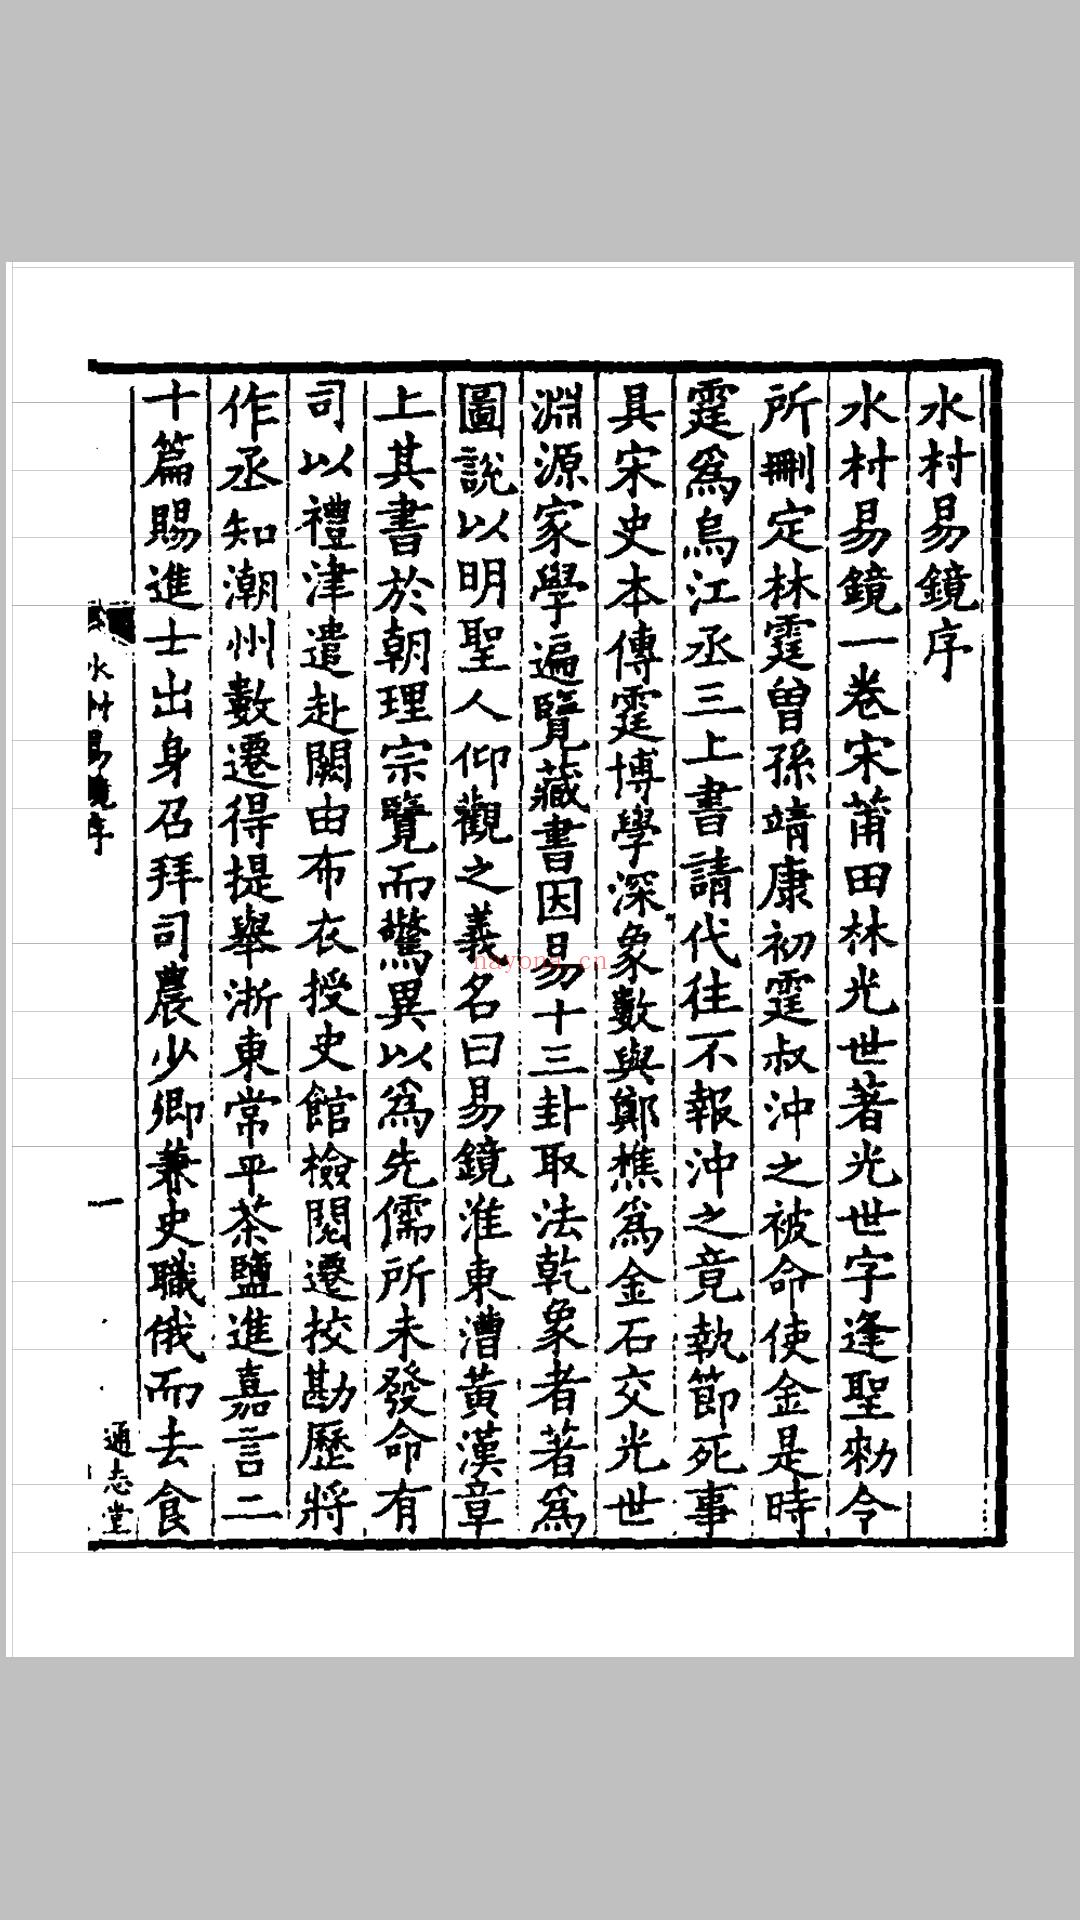 水村易鏡序
水村易鏡一卷宋莆田林光世著光世字逢聖勑令
所刪定林霆曾孫靖康初霆叔沖之被命使金是時
霆爲烏江丞三上書請代往不報沖之竟執節死事
具宋史本傳霆博學深象數與鄭樵爲金石交光世
淵源家學遍覽藏書因易十三卦取法乾象者著爲
圖說以明聖人仰觀之義名曰易鏡淮東漕黃漢章
上其書於朝理宗覽而驚異以爲先儒所未發命有
司以禮津遣赴闕由布衣授史館檢閱遷挍勘歷將
作丞知潮州數遷得提舉浙東常平茶鹽進嘉言二
十篇賜進士出身召拜司農少卿兼史職俄而去食
水村易鏡序
一
通志堂
nayona.cn